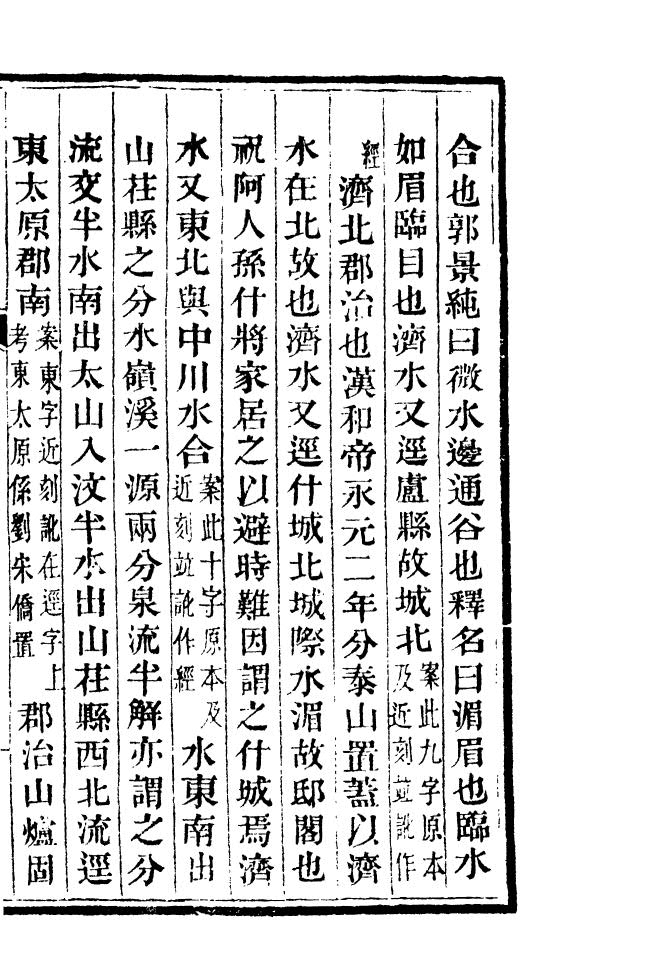 合也郭景純曰微水邊通谷也釋名曰湄眉也臨水
如眉臨目也濟水又逕盧縣故城北案此九字原本及近刻竝訛作
經濟北郡治也漢和帝永元二年分泰山置蓋以濟
水在北故也濟水又逕什城北城際水湄故邸閣也
祝阿人孫什將家居之以避時難因謂之什城焉濟
水又東北與中川水合案此十字原本及近刻竝訛作經水東南出
山茌縣之分水嶺溪一源兩分泉流半解亦謂之分
流交半水南出太山入汶半水出山茌縣西北流逕
東太原郡南案東字近刻訛在逕字上考東太原係劉宋僑置郡治山爐固